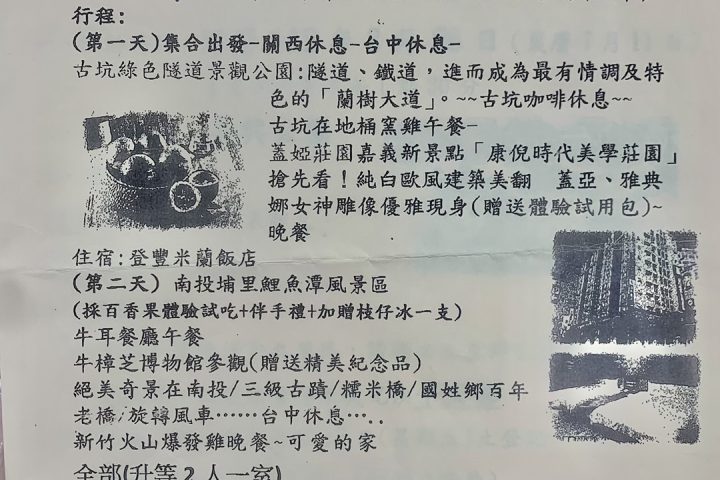 行程:
(第一天)集合出發-關西休息-台中休息-
古坑綠色隧道景觀公園:隧道、鐵道，進而成為最有情調及特
色的「蘭樹大道」。~~古坑咖啡休息~~
古坑在地桶窯雞午餐-
蓋婭莊園嘉義新景點「康倪時代美學莊園」
搶先看！純白歐風建築美翻 蓋亞、雅典
娜女神雕像優雅現身(贈送體驗試用包)~
晚餐
住宿:登豐米蘭飯店
(第二天) 南投埔里鯉魚潭風景區
(採百香果體驗試吃+伴手禮+加贈枝仔冰一支)
牛耳餐廳午餐
牛樟芝博物館參觀(贈送精美紀念品)
絕美奇景在南投/三級古蹟/糯米橋/國姓鄉百年
老橋/旋轉風車……台中休息…..
新竹火山爆發雞晚餐~可愛的家
全部(升等2人一室)